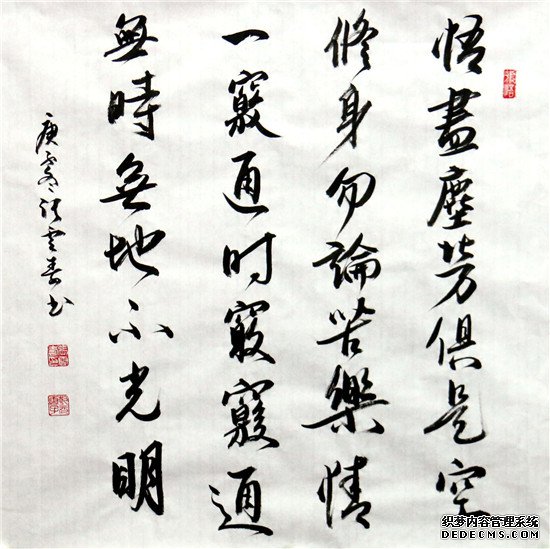 悟盡塵勞俱是空
修身勿論苦樂情
一竅通时竅竅通
無時無地不光明
庚 冬 張雲春书
织梦内容管理系统
DEDECMS.COM